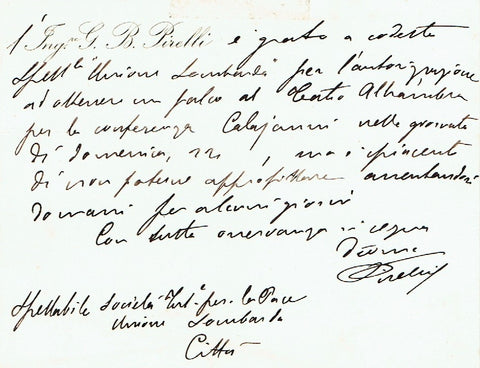 l'Ing.re G. B. Pirelli è grato a codesta
Spett.le "Unione Lombarda" per l'autorizzazione
ad ottenere un palco al Teatro Alhambra
per la conferenza Calajanni nella giornata
di domenica, ma è spiacente
di non poterne approfittare assentandosi
domani per alcuni giorni
Con tutta osservanza si segna
Pirelli
Spettabile Società per la Pace
Unione Lombarda
Città